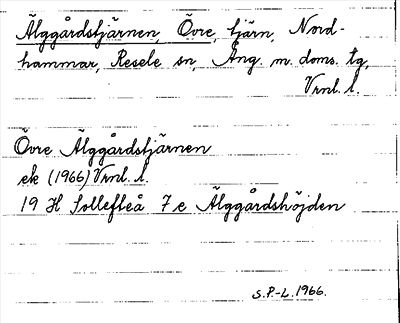 Älggårdstjärnen, Övre, tjärn, Nord-
hammar, Resele sn, Ång. m. doms. tg,
Vrnl. l.
Övre Älggårdstjärnen
ek (1966) Vrnl. l.
19 H Sollefteå 7 e Älggårdshöjden
S.P.-L. 1966.